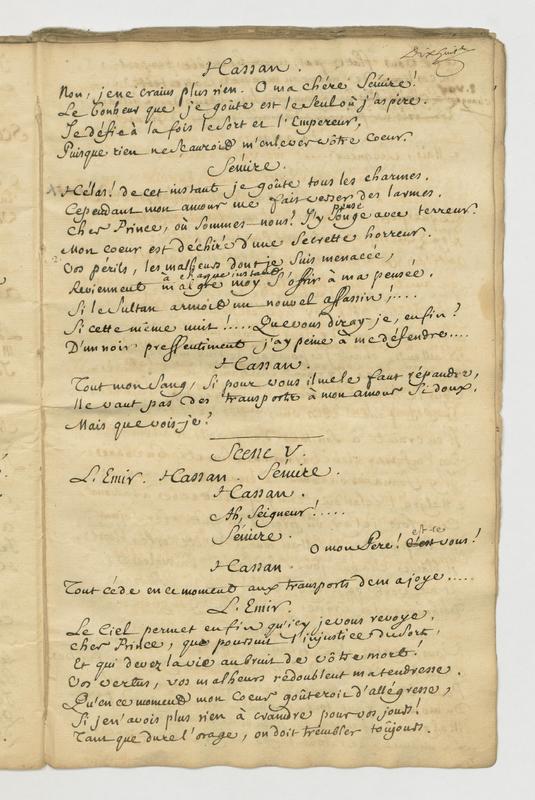 Dix huit
Hassan.
Non, je ne crains plus rien. O ma chére Sémire!
Le bonheur que je goûte est le seul où j'aspire.
Je défie à la fois le Sort et l'Empereur,
Puisque rien ne Sauroit m'enlever vôtre Coeur.
Semire.
Hélas! de cet instant je goûte tous les charmes.
Cependant mon amour me fait verser des larmes.
Cher Prince, où Sommes-nous? J'y pense avec terreur.
Mon coeur est déchiré d'une Secrette horreur.
Vos périls, les malheurs dont je Suis menacée,
à chaque instant
Reviennent malgré moy S'offrir à ma pensée.
Si le Sultan armoit un nouvel assassin!....
Si cette même nuit!.... Que vous diray-je, enfin?
D'un noir pressentiment j'ay peine à me défendre....
Hassan.
Tout mon Sang, Si pour vous il me le faut répandre,
Ne vaut pas des transports à mon amour Si doux.
Mais que vois-je?
Scene V.
L'Emir. Hassan. Sémire.
Hassan.
Ah, Seigneur!.....
Sémire.
est-ce
O mon Pere! c'est vous!
Hassan.
Tout céde en ce moment aux transports de ma joye.....
L'Emir.
Le Ciel permet enfin qu'icy je vous revoye,
Cher Prince, que poursuit l'injustice du Sort,
Et qui devez la vie au bruit de vôtre mort!
Vos vertus, vos malheurs redoublent ma tendresse.
Qu'en ce moment mon Coeur goûteroit d'allégresse,
Si je n'avois plus rien à craindre pour vos jours!
Tant que dure l'orage, on doit trembler toûjours.